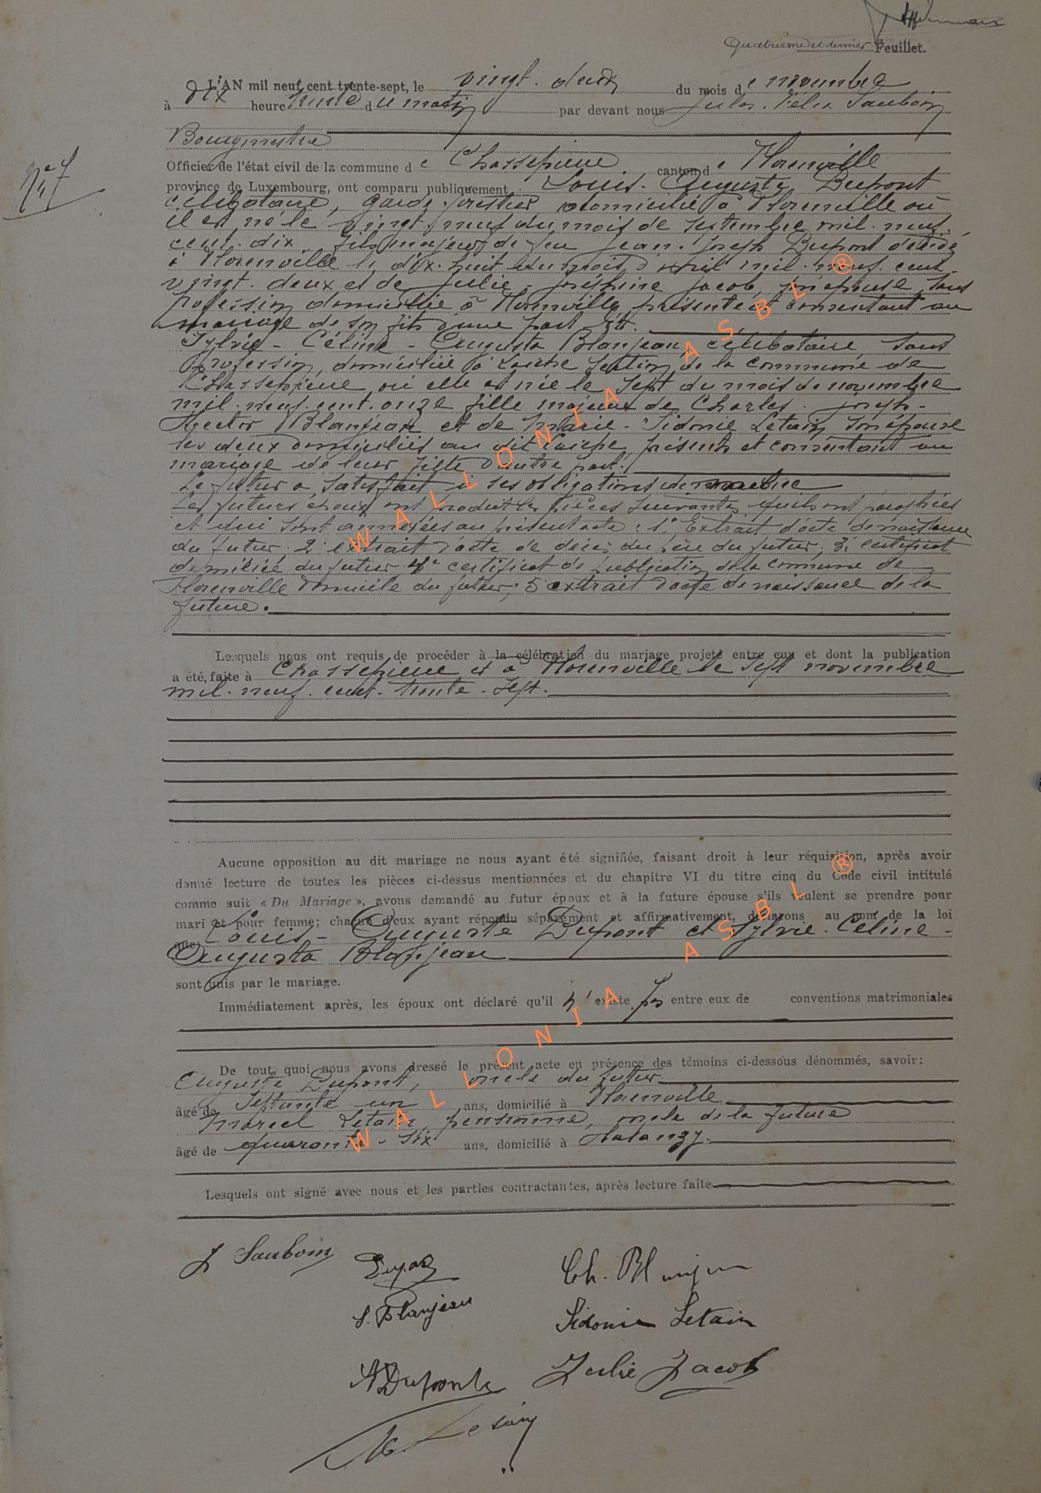 Quatrième et dernier Feuillet.
L'AN mil neuf cent trente-sept, le vingt-deux du mois de novembre
à dix heures trente du matin par devant nous Jules-Félix Sauboin
Bourgmestre
Officier de l'état civil de la commune de Chassepierre canton de Florenville
province de Luxembourg, ont comparu publiquement Louis-Auguste Dupont
célibataire, garde-forestier domicilié à Florenville où
il est né le vingt-neuf du mois de septembre mil-neuf-
cent-dix, fils majeur de feu Jean-Joseph Dupont décédé
à Florenville le dix-huit du mois d'avril mil-neuf-cent-
vingt-deux et de Julie-Joséphine Jacob, son épouse, sans
profession domiciliée à Florenville, présente et consentant au
mariage de son fils d'une part. Et.
Sylvie-Céline-Augusta Blanjean, célibataire sans
profession, domiciliée à Laiche section de la commune de
Chassepierre où elle est née le sept du mois de novembre
mil-neuf-cent-onze fille majeure de Charles-Joseph-
Hector Blanjean et de Marie-Sidonie Létain son épouse
les deux domiciliés au dit Laiche, présents et consentant au
mariage de leur fille d'autre part.
Le futur a satisfait à ses obligations de milice
Les futurs époux ont produit les pièces suivantes qu'ils ont paraphées
et qui sont annexées au présent acte : 1° Extrait d'acte de naissance
du futur. 2° extrait d'acte de décès du père du futur, 3° certificat
de milice du futur. 4° certificat de publication de la commune de
Florenville domicile du futur; 5° extrait d'acte de naissance de la
future.
Lesquels nous ont requis de procéder à la célébration du mariage projeté entre eux et dont la publication
a été, faite à Chassepierre et à Florenville le sept novembre
mil-neuf-cent-trente-sept.
Aucune opposition au dit mariage ne nous ayant été signifiée, faisant droit à leur réquisition, après avoir
donné lecture de toutes les pièces ci-dessus mentionnées et du chapitre VI du titre cinq du Code civil intitulé
comme suit « Du Mariage », avons demandé au futur époux et à la future épouse s'ils veulent se prendre pour
mari et pour femme; chacun d'eux ayant répondu séparément et affirmativement, déclarons au nom de la loi
que Louis-Auguste Dupont et Sylvie-Céline-
Augusta Blanjean
sont unis par le mariage.
Immédiatement après, les époux ont déclaré qu'il n'existe pas entre eux de conventions matrimoniales
De tout quoi nous avons dressé le présent acte en présence des témoins ci-dessous dénommés, savoir:
Auguste Dupont, oncle du futur
âgé de septante un ans, domicilié à Florenville
Marcel Létain, pensionné, oncle de la future
âgé de quarante-six ans, domicilié à Halanzy.
Lesquels ont signé avec nous et les parties contractantes, après lecture faite
J Sauboin
Dupont
Ch. Blanjean
S. Blanjean
Sidonie Letain
A Dupont
Julie Jacob
M. Letain
N° 7
WALLONIA ASBL ®
WALLONIA ASBL ®